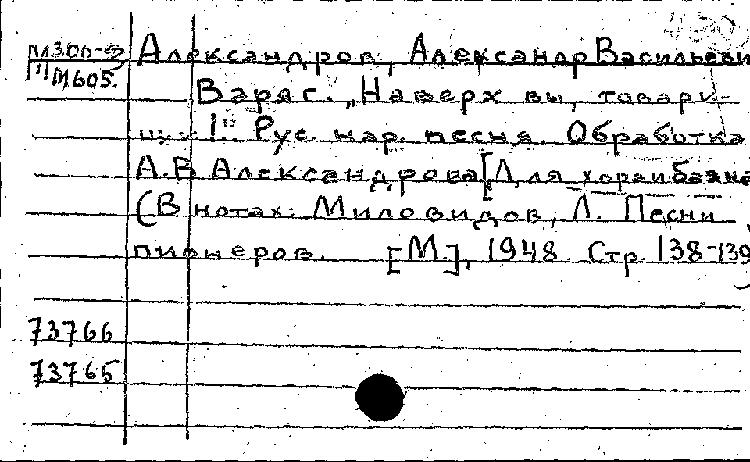 М300-3 Александров, Александр Васильеви
М605.
Варяг. „Наверх вы, товари-
щи!..." Рус. нар. песня. Обработка
А.В Александрова [Для хора и баяна
(В нотах: Миловидов, Л. Песни
пионеров. [М.], 1948. Стр. 138-139
73766
73765